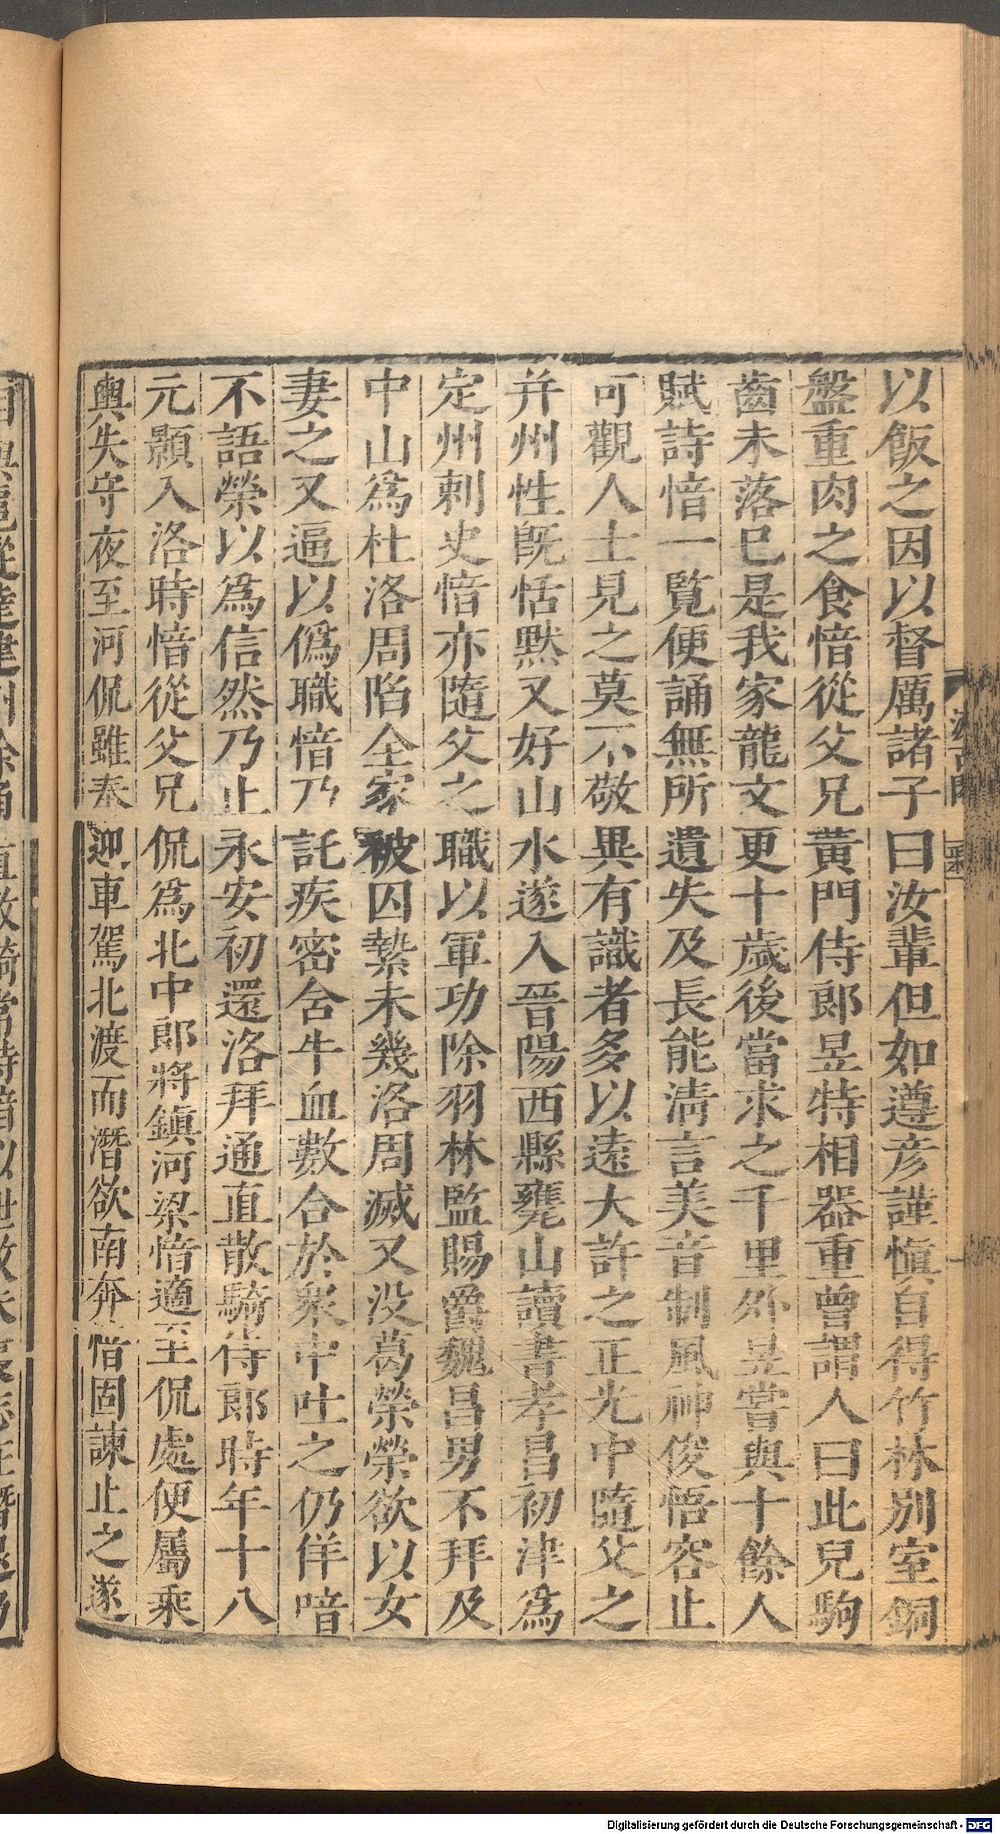 以飯之因以督厲諸子曰汝輩但如遵彥謹愼自得竹林別室銅
盤重肉之食愔從父兄黃門侍郞昱特相器重曾謂人曰此兒駒
齒未落已是我家龍文更十歲後當求之千里外昱嘗與十餘人
賦詩愔一覧便誦無所遺失及長能淸言美音制風神俊悟容止
可觀人士見之莫不敬異有識者多以遠大許之正光中隨父之
并州性旣恬黙又好山水遂入晉陽西縣甕山讀書孝昌初津爲
定州刺史愔亦隨父之職以軍功除羽林監賜爵魏昌男不拜及
中山爲杜洛周陷全家被囚縶未幾洛周滅又没葛榮榮欲以女
妻之又逼以僞職愔乃託疾密含牛血數合於衆中吐之仍佯喑
不語榮以爲信然乃止永安初還洛拜通直散騎侍郞時年十八
元顥入洛時愔從父兄侃爲北中郞將鎮河梁愔適至侃處便屬乘
輿失守夜至河侃雖奉迎車駕北渡而潛欲南奔愔固諫止之遂
Digitalisierung gefördert durch die Deutsche Forschungsgemeinschaft - DFG